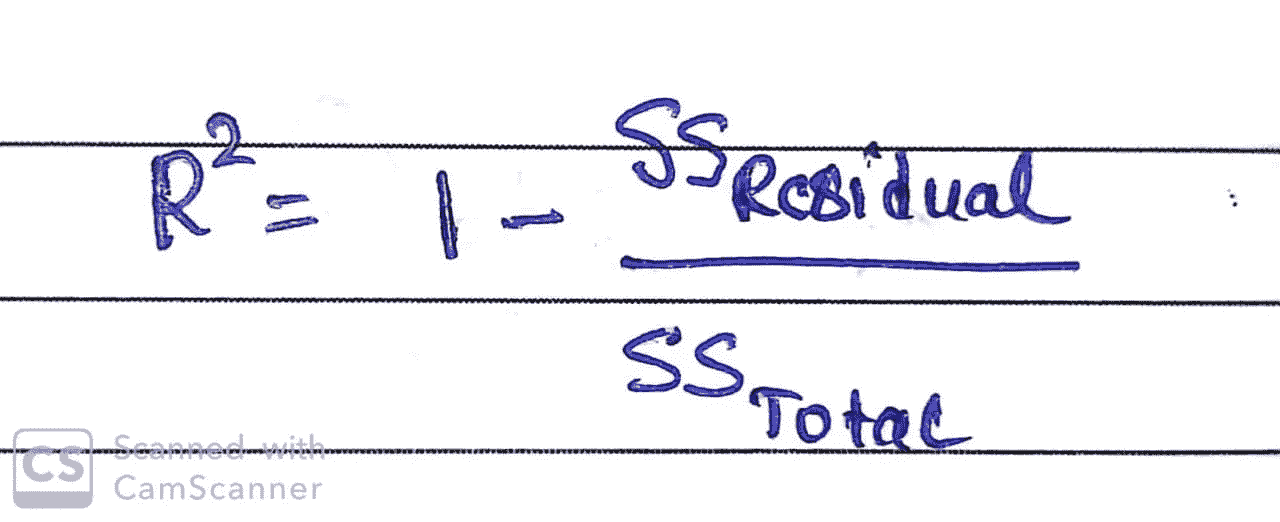 R² = 1 - SS Residual
SS Total
Scanned with
CamScanner
CS